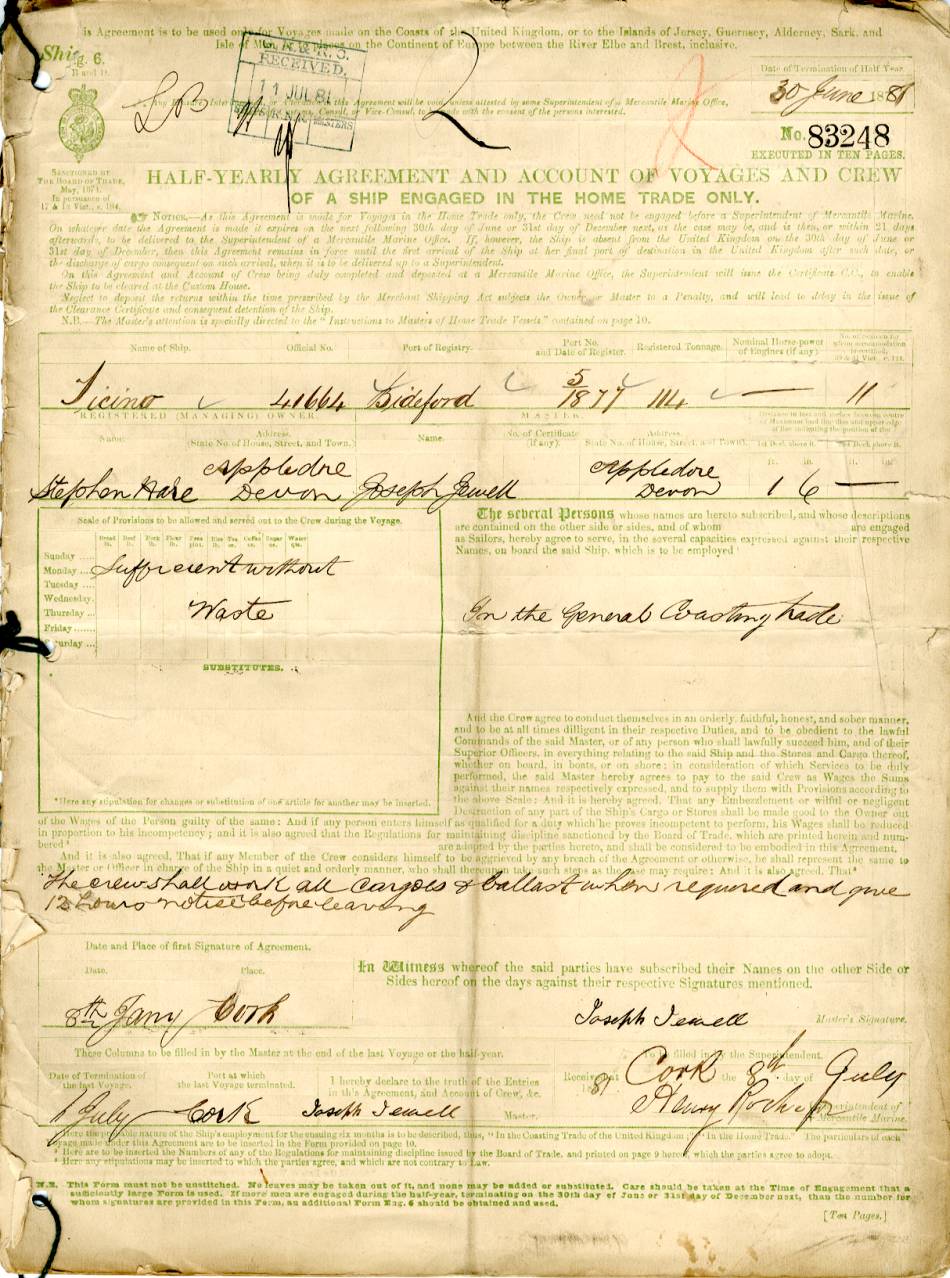 is Agreement is to be used only for Voyages made on the Coasts of the United Kingdom, or to the Islands of Jersey, Guernsey, Alderney, Sark, and
Isle of Man, places on the Continent of Europe between the River Elbe and Brest, inclusive.
Ship
g. 6.
B and D.
RECEIVED.
11 JUL 81
Any Erasure, Interlineation or Alteration in this Agreement will be void unless attested by some Superintendent of a Mercantile Marine Office,
Consul, or Vice-Consul, to be made with the consent of the persons interested.
2
Date of Termination of Half Year.
30 June 1881
No. 83248
EXECUTED IN TEN PAGES.
SANCTIONED BY
THE BOARD OF TRADE,
May, 1874.
In pursuance of
17 & 18 Vict., c. 104.
HALF-YEARLY AGREEMENT AND ACCOUNT OF VOYAGES AND CREW
OF A SHIP ENGAGED IN THE HOME TRADE ONLY.
NOTICE.—As this Agreement is made for Voyages in the Home Trade only, the Crew need not be engaged before a Superintendent of Mercantile Marine.
On whatever date the Agreement is made it expires on the next following 30th day of June or 31st day of December next, as the case may be, and is then, or within 21 days
afterwards, to be delivered to the Superintendent of a Mercantile Marine Office. If, however, the Ship is absent from the United Kingdom on the 30th day of June or
31st day of December, then this Agreement remains in force until the first arrival of the Ship at her final port of destination in the United Kingdom after such date, or
the discharge of cargo consequent on such arrival, when it is to be delivered up to a Superintendent.
On this Agreement and Account of Crew being duly completed and deposited at a Mercantile Marine Office, the Superintendent will issue the Certificate C.C., to enable
the Ship to be cleared at the Custom House.
Neglect to deposit the returns within the time prescribed by the Merchant Shipping Act subjects the Owner or Master to a Penalty, and will lead to delay in the issue of
the Clearance Certificate and consequent detention of the Ship.
N.B.—The Master's attention is specially directed to the "Instructions to Masters of Home Trade Vessels" contained on page 10.
Name of Ship. Official No. Port of Registry. Port No. and Date of Register. Registered Tonnage. Nominal Horse-power of Engines (if any).
Ticino 41664 Bideford 5/1877 114 — 11
REGISTERED (MANAGING) OWNER. MASTER.
Name. Address. (State No. of House, Street, and Town.) Name. No. of Certificate (if any). Address. (State No. of House, Street, and Town).
ft. in. ft. in.
Stephen Hare Appledore Devon Joseph Jewell Appledore Devon 1 6 —
Scale of Provisions to be allowed and served out to the Crew during the Voyage.
Bread lb. Beef lb. Pork lb. Flour lb. Peas pint. Rice Tea oz. Coffee oz. Sugar oz. Water qts.
Sunday ....
Monday ...
Tuesday ...
Wednesday.
Thursday ...
Friday ......
aturday ....
Sufficient without
Waste
SUBSTITUTES.
*Here any stipulation for changes or substitution of one article for another may be inserted.
The several Persons whose names are hereto subscribed, and whose descriptions
are contained on the other side or sides, and of whom are engaged
as Sailors, hereby agree to serve, in the several capacities expressed against their respective
Names, on board the said Ship, which is to be employed
In the General Coasting trade
And the Crew agree to conduct themselves in an orderly, faithful, honest, and sober manner,
and to be at all times dilligent in their respective Duties, and to be obedient to the lawful
Commands of the said Master, or of any person who shall lawfully succeed him, and of their
Superior Officers, in everything relating to the said Ship and the Stores and Cargo thereof,
whether on board, in boats, or on shore: in consideration of which Services to be duly
performed, the said Master hereby agrees to pay to the said Crew as Wages the Sums
against their names respectively expressed, and to supply them with Provisions according to
the above Scale: And it is hereby agreed, That any Embezzlement or wilful or negligent
Destruction of any part of the Ship's Cargo or Stores shall be made good to the Owner out
of the Wages of the Person guilty of the same: And if any person enters himself as qualified for a duty which he proves incompetent to perform, his Wages shall be reduced
in proportion to his incompetency; and it is also agreed that the Regulations for maintaining discipline sanctioned by the Board of Trade, which are printed herein and num-
bered are adopted by the parties hereto, and shall be considered to be embodied in this Agreement.
And it is also agreed, That if any Member of the Crew considers himself to be aggrieved by any breach of the Agreement or otherwise, he shall represent the same to
the Master or Officer in charge of the Ship in a quiet and orderly manner, who shall thereupon take such steps as the case may require: And it is also agreed, That
The crew shall work all cargoes & ballast when required and give
12 hours notice before leaving
Date and Place of first Signature of Agreement.
Date. Place.
8th Jany Cork
In Witness whereof the said parties have subscribed their Names on the other Side or
Sides hereof on the days against their respective Signatures mentioned.
Joseph Jewell Master's Signature.
These Columns to be filled in by the Master at the end of the last Voyage or the half-year.
Date of Termination of the last Voyage. Port at which the last Voyage terminated.
1 July Cork
I hereby declare to the truth of the Entries
in this Agreement, and Account of Crew, &c.
Joseph Jewell Master.
To be filled in by the Superintendent.
Received at Cork the 8th day of July
81
Henry Superintendent of
Mercantile Marine.
Here the probable nature of the Ship's employment for the ensuing six months is to be described, thus, "In the Coasting Trade of the United Kingdom;" "In the Home Trade." The particulars of each
Voyage made under this Agreement are to be inserted in the Form provided on page 10.
Here are to be inserted the Numbers of any of the Regulations for maintaining discipline issued by the Board of Trade, and printed on page 9 hereof, which the parties agree to adopt.
Here any stipulations may be inserted to which the parties agree, and which are not contrary to Law.
N.B. This Form must not be unstitched. No leaves may be taken out of it, and none may be added or substituted. Care should be taken at the Time of Engagement that a
sufficiently large Form is used. If more men are engaged during the half-year, terminating on the 30th day of June or 31st day of December next, than the number for
whom signatures are provided in this Form, an additional Form Eng. 6 should be obtained and used.
[Ten Pages.]